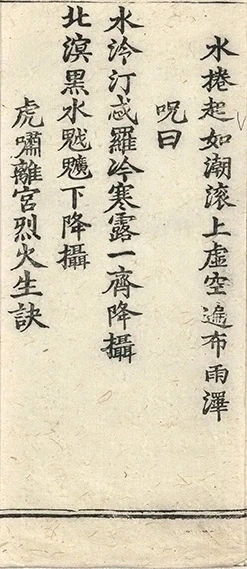 水捲起如潮滚上虛空遍布雨澤
呪曰
水泠汀忒羅冷寒露一齊降攝
北溟黑水魃魕下降攝
虎嘯離宮烈火生訣